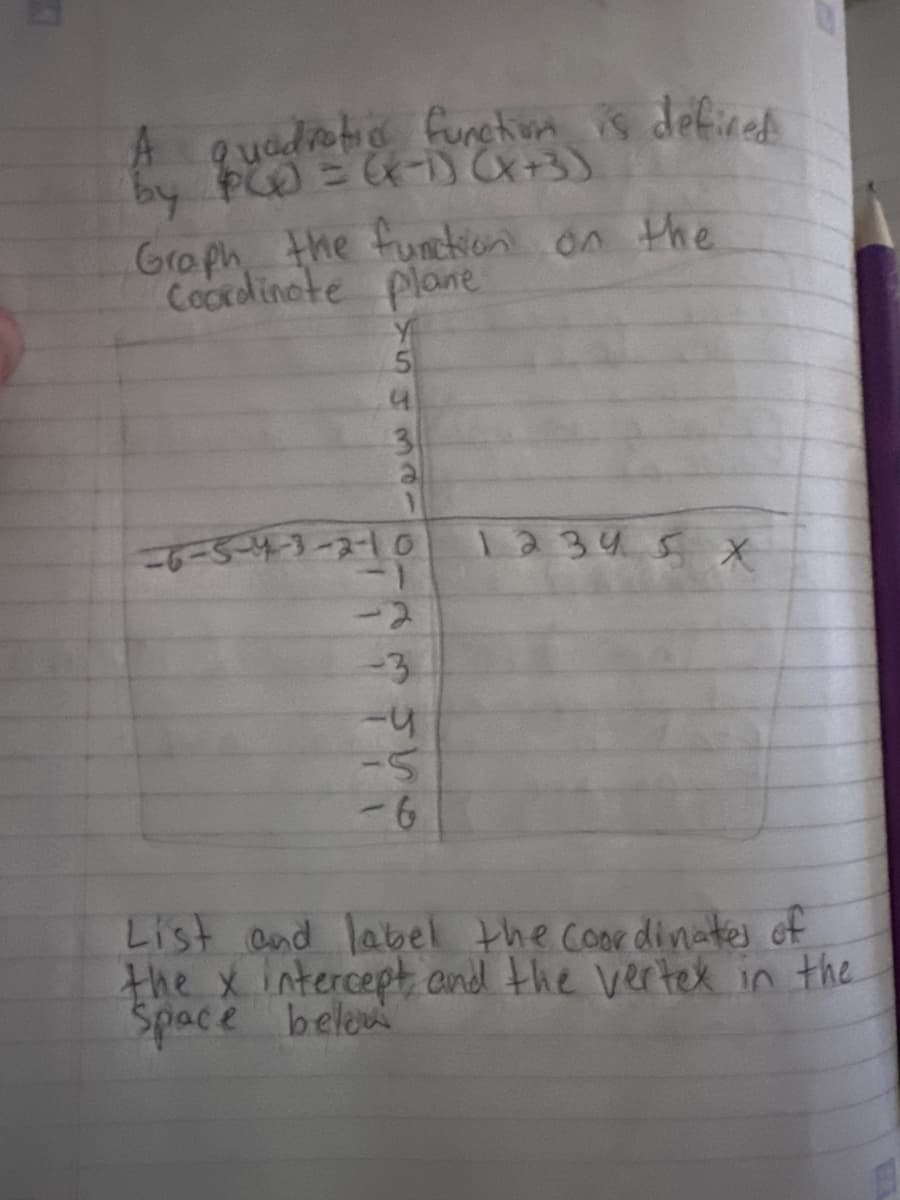 A quadratic function is defined
by p(x) = (x-1) (x+3)
Graph the function on the
Coordinate plane
Y
5
4
3
2
1
-6-5-4-3-2-1 0 1 2 3 4 5 X
-1
-2
-3
-4
-5
-6
List and label the coordinates of
the x intercept, and the vertex in the
Space below